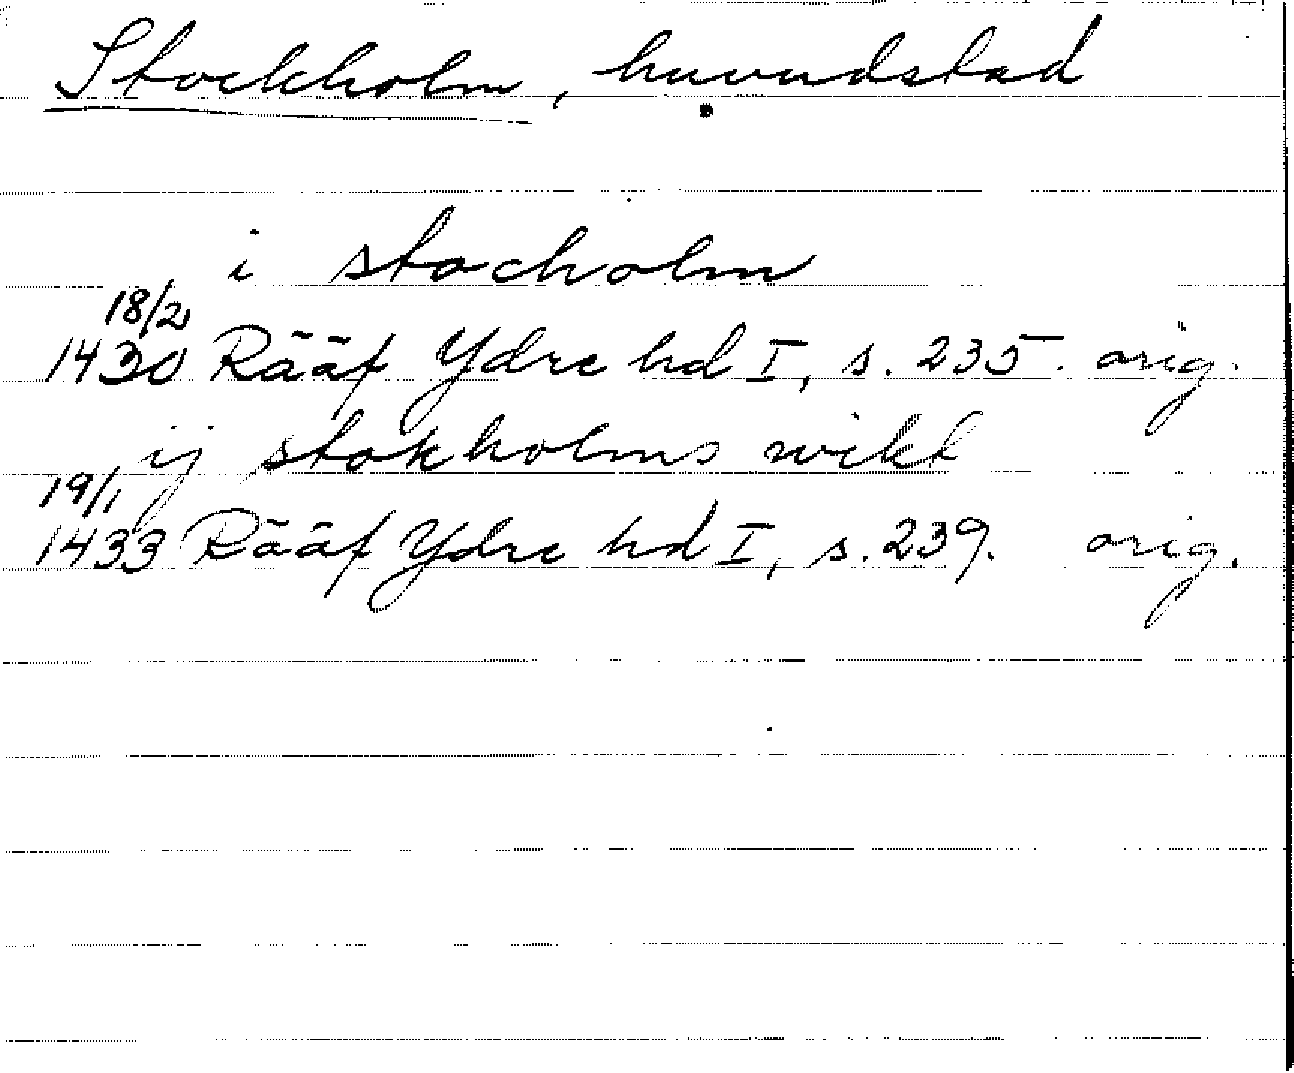 Stockholm, huvudstad
i stocholm
18/2
1430 Rääf Ydre hd I, s. 235. orig.
ij stokholms wikt
19/1
1433 Rääf Ydre hd I, s. 239. orig.